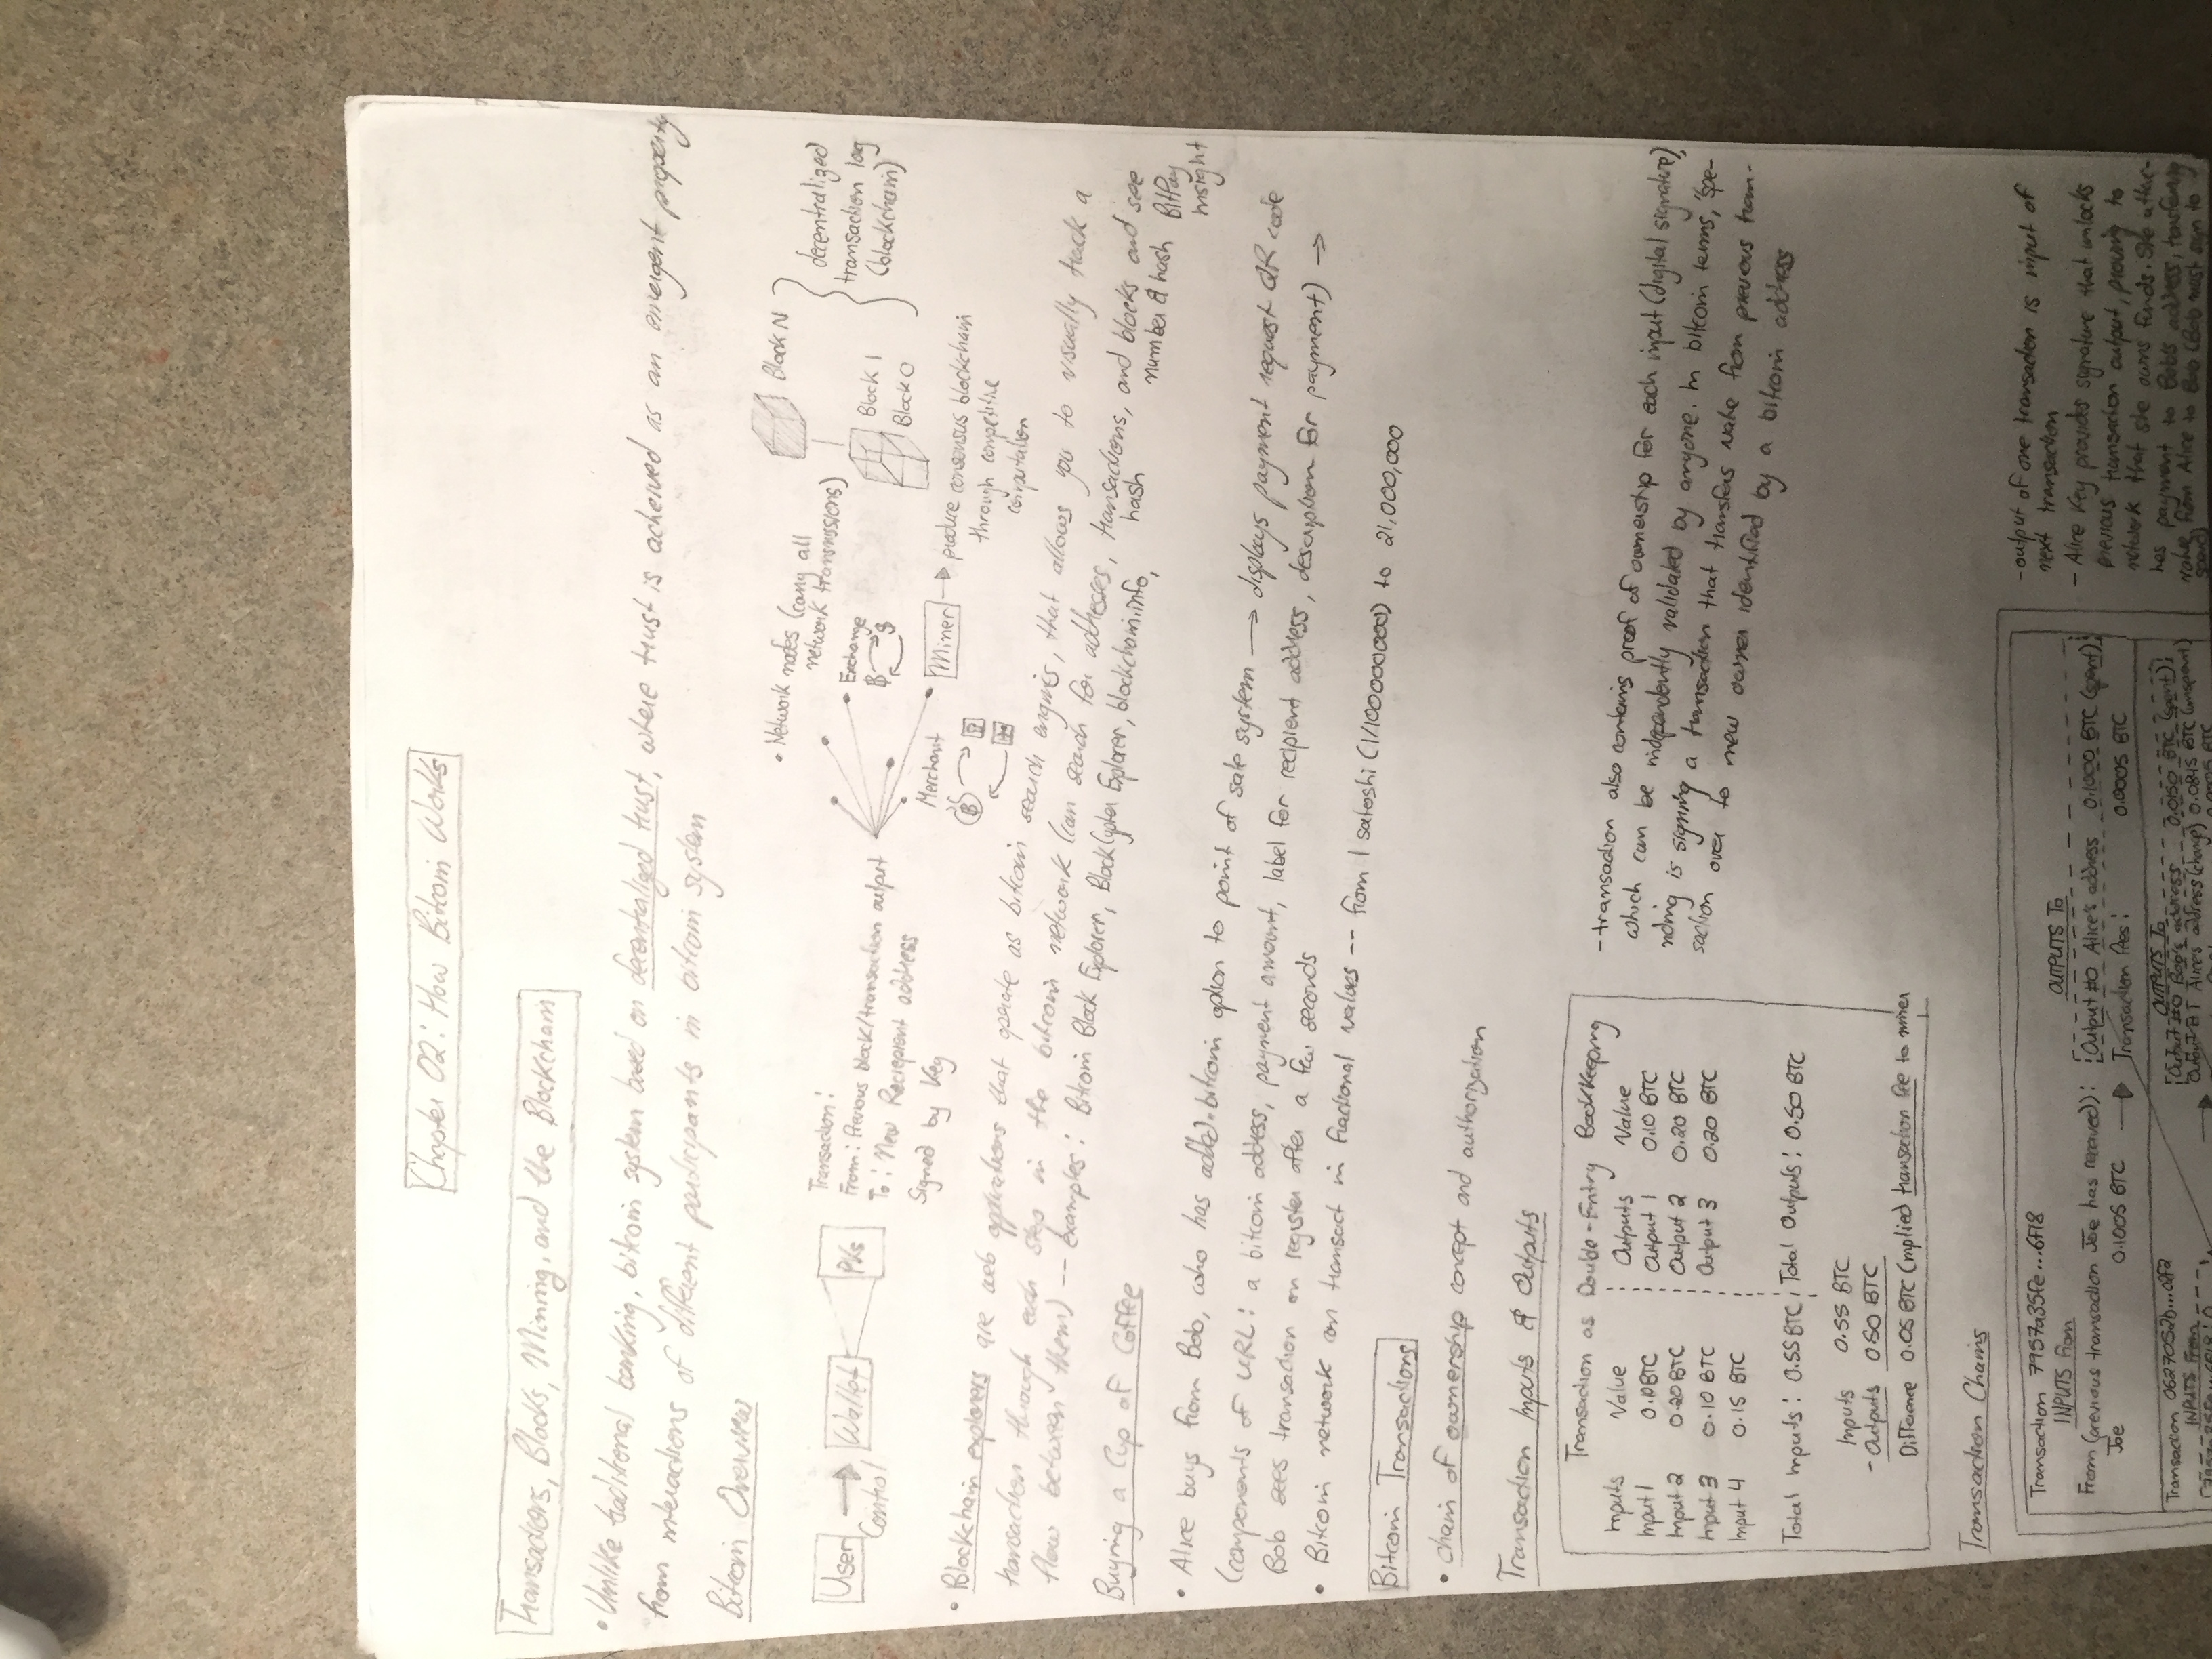 Chapter 02: How Bitcoin Works
Transactions, Blocks, Mining, and the Blockchain
• Unlike traditional banking, bitcoin system based on decentralized trust, where trust is achieved as an emergent property
from interactions of different participants in bitcoin system
Bitcoin Overview
User → Wallet PKs
Control
Transaction:
From: Previous block/transaction output
To: New Recipient address
Signed by Key
• Network nodes (carry all
network transmissions)
Exchange
B $
Merchant
B
Miner → produce consensus blockchain
through competitive
computation
Block N
Block 1
Block 0
decentralized
transaction log
(blockchain)
• Blockchain explorers are web applications that operate as bitcoin search engines, that allows you to visually track a
transaction through each step in the bitcoin network (can search for addresses, transactions, and blocks and see
flow between them) -- examples: Bitcoin Block Explorer, BlockCypher Explorer, blockchain.info,
hash
number & hash
BitPay
Insight
Buying a Cup of Coffee
• Alice buys from Bob, who has added bitcoin option to point of sale system → displays payment request QR code
(components of URL: a bitcoin address, payment amount, label for recipient address, description for payment) ⇒
Bob sees transaction on register after a few seconds
• Bitcoin network can transact in fractional values -- from 1 satoshi (1/100000000) to 21,000,000
Bitcoin Transactions
• chain of ownership concept and authorization
Transaction Inputs & Outputs
Transaction as Double-Entry Bookkeeping
Inputs Value Outputs Value
Input 1 0.10BTC Output 1 0.10 BTC
Input 2 0.20BTC Output 2 0.20 BTC
Input 3 0.10 BTC Output 3 0.20 BTC
Input 4 0.15 BTC
Total Inputs: 0.55 BTC Total Outputs: 0.50 BTC
Inputs 0.55 BTC
- Outputs 0.50 BTC
Difference 0.05 BTC (implied transaction fee to miner
- transaction also contains proof of ownership for each input (digital signature),
which can be independently validated by anyone. In bitcoin terms, "spe-
nding is signing a transaction that transfers value from previous tran-
saction over to new owner identified by a bitcoin address
Transaction Chains
Transaction 7957a35fe...6f18
INPUTS From OUTPUTS To
From (previous transaction Joe has received): Output #0 Alice's address 0.1000 BTC (spent)
Joe 0.1005 BTC → Transaction fees: 0.0005 BTC
Transaction 0627052b...
INPUTS From OUTPUTS To
Output #0 Bob's address 0.0150 BTC (spent)
Output #1 Alice's address (change) 0.0845 BTC (unspent)
0.0005 BTC
- output of one transaction is input of
next transaction
- Alice key provides signature that unlocks
previous transaction output, proving to
network that she owns funds. She attac-
hes payment to Bob's address, transferring
value from Alice to Bob (Bob must sign to
spend)